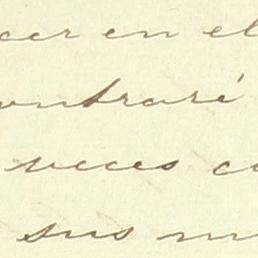 cer en el
ontraré
veces co
sus m